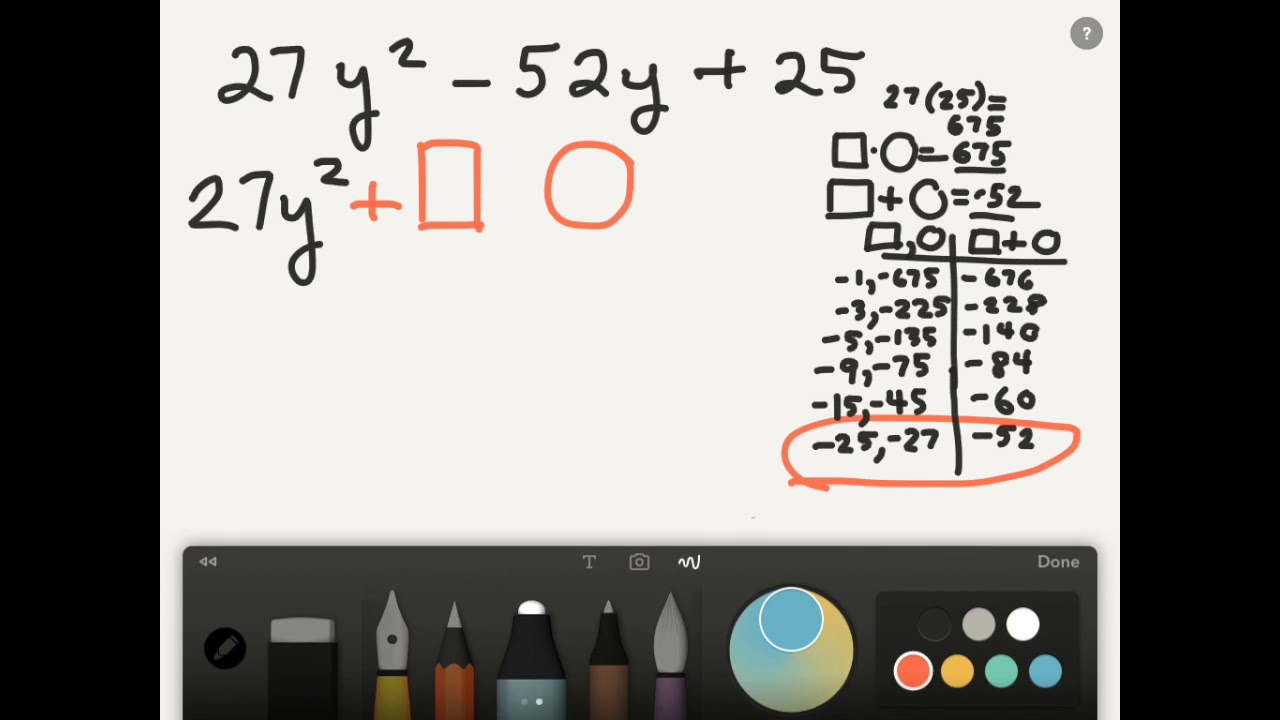 27y² - 52y + 25
27(25)=
675
□·○=675
27y² + □ ○
□+○=-52
□,○ □+○
-1,-675 -676
-3,-225 -228
-5,-135 -140
-9,-75 -84
-15,-45 -60
-25,-27 -52
T Done
?